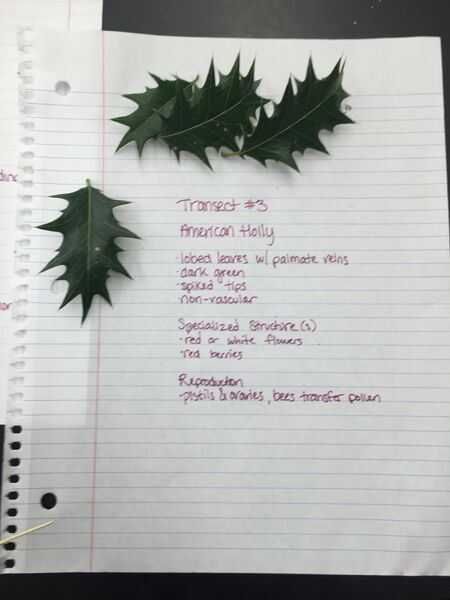 Transect #3
American Holly
· lobed leaves w/ palmate veins
· dark green
· spiked tips
· non-vascular
Specialized Structure(s)
· red or white flowers
· red berries
Reproduction
· pistils & ovaries, bees transfer pollen